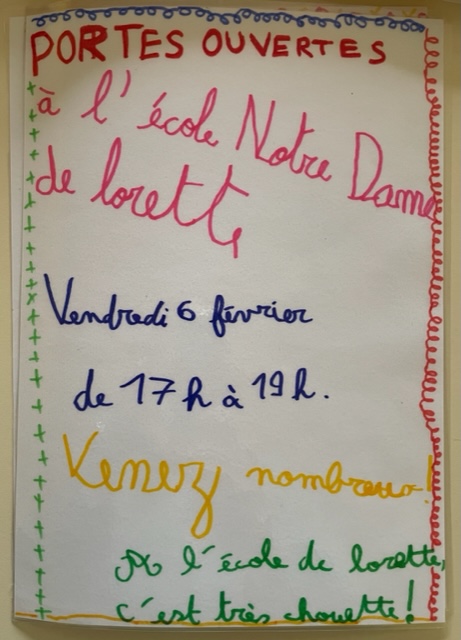 PORTES OUVERTES
à l'école Notre Dame
de lorette
Vendredi 6 février
de 17h à 19h.
Venez nombreux!
A l'école de lorette,
c'est très chouette!